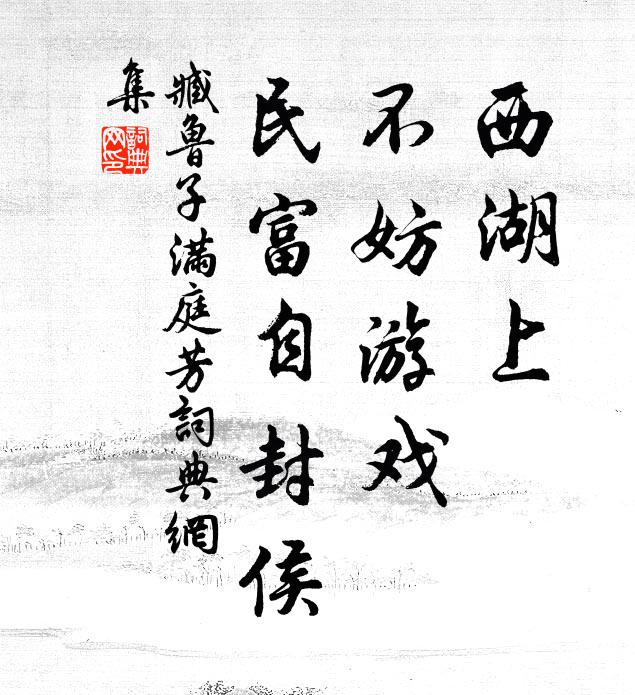 西湖上
不妨游戏
民富自封侯
臧鲁子滿庭芳詞典網
集
詞典网印